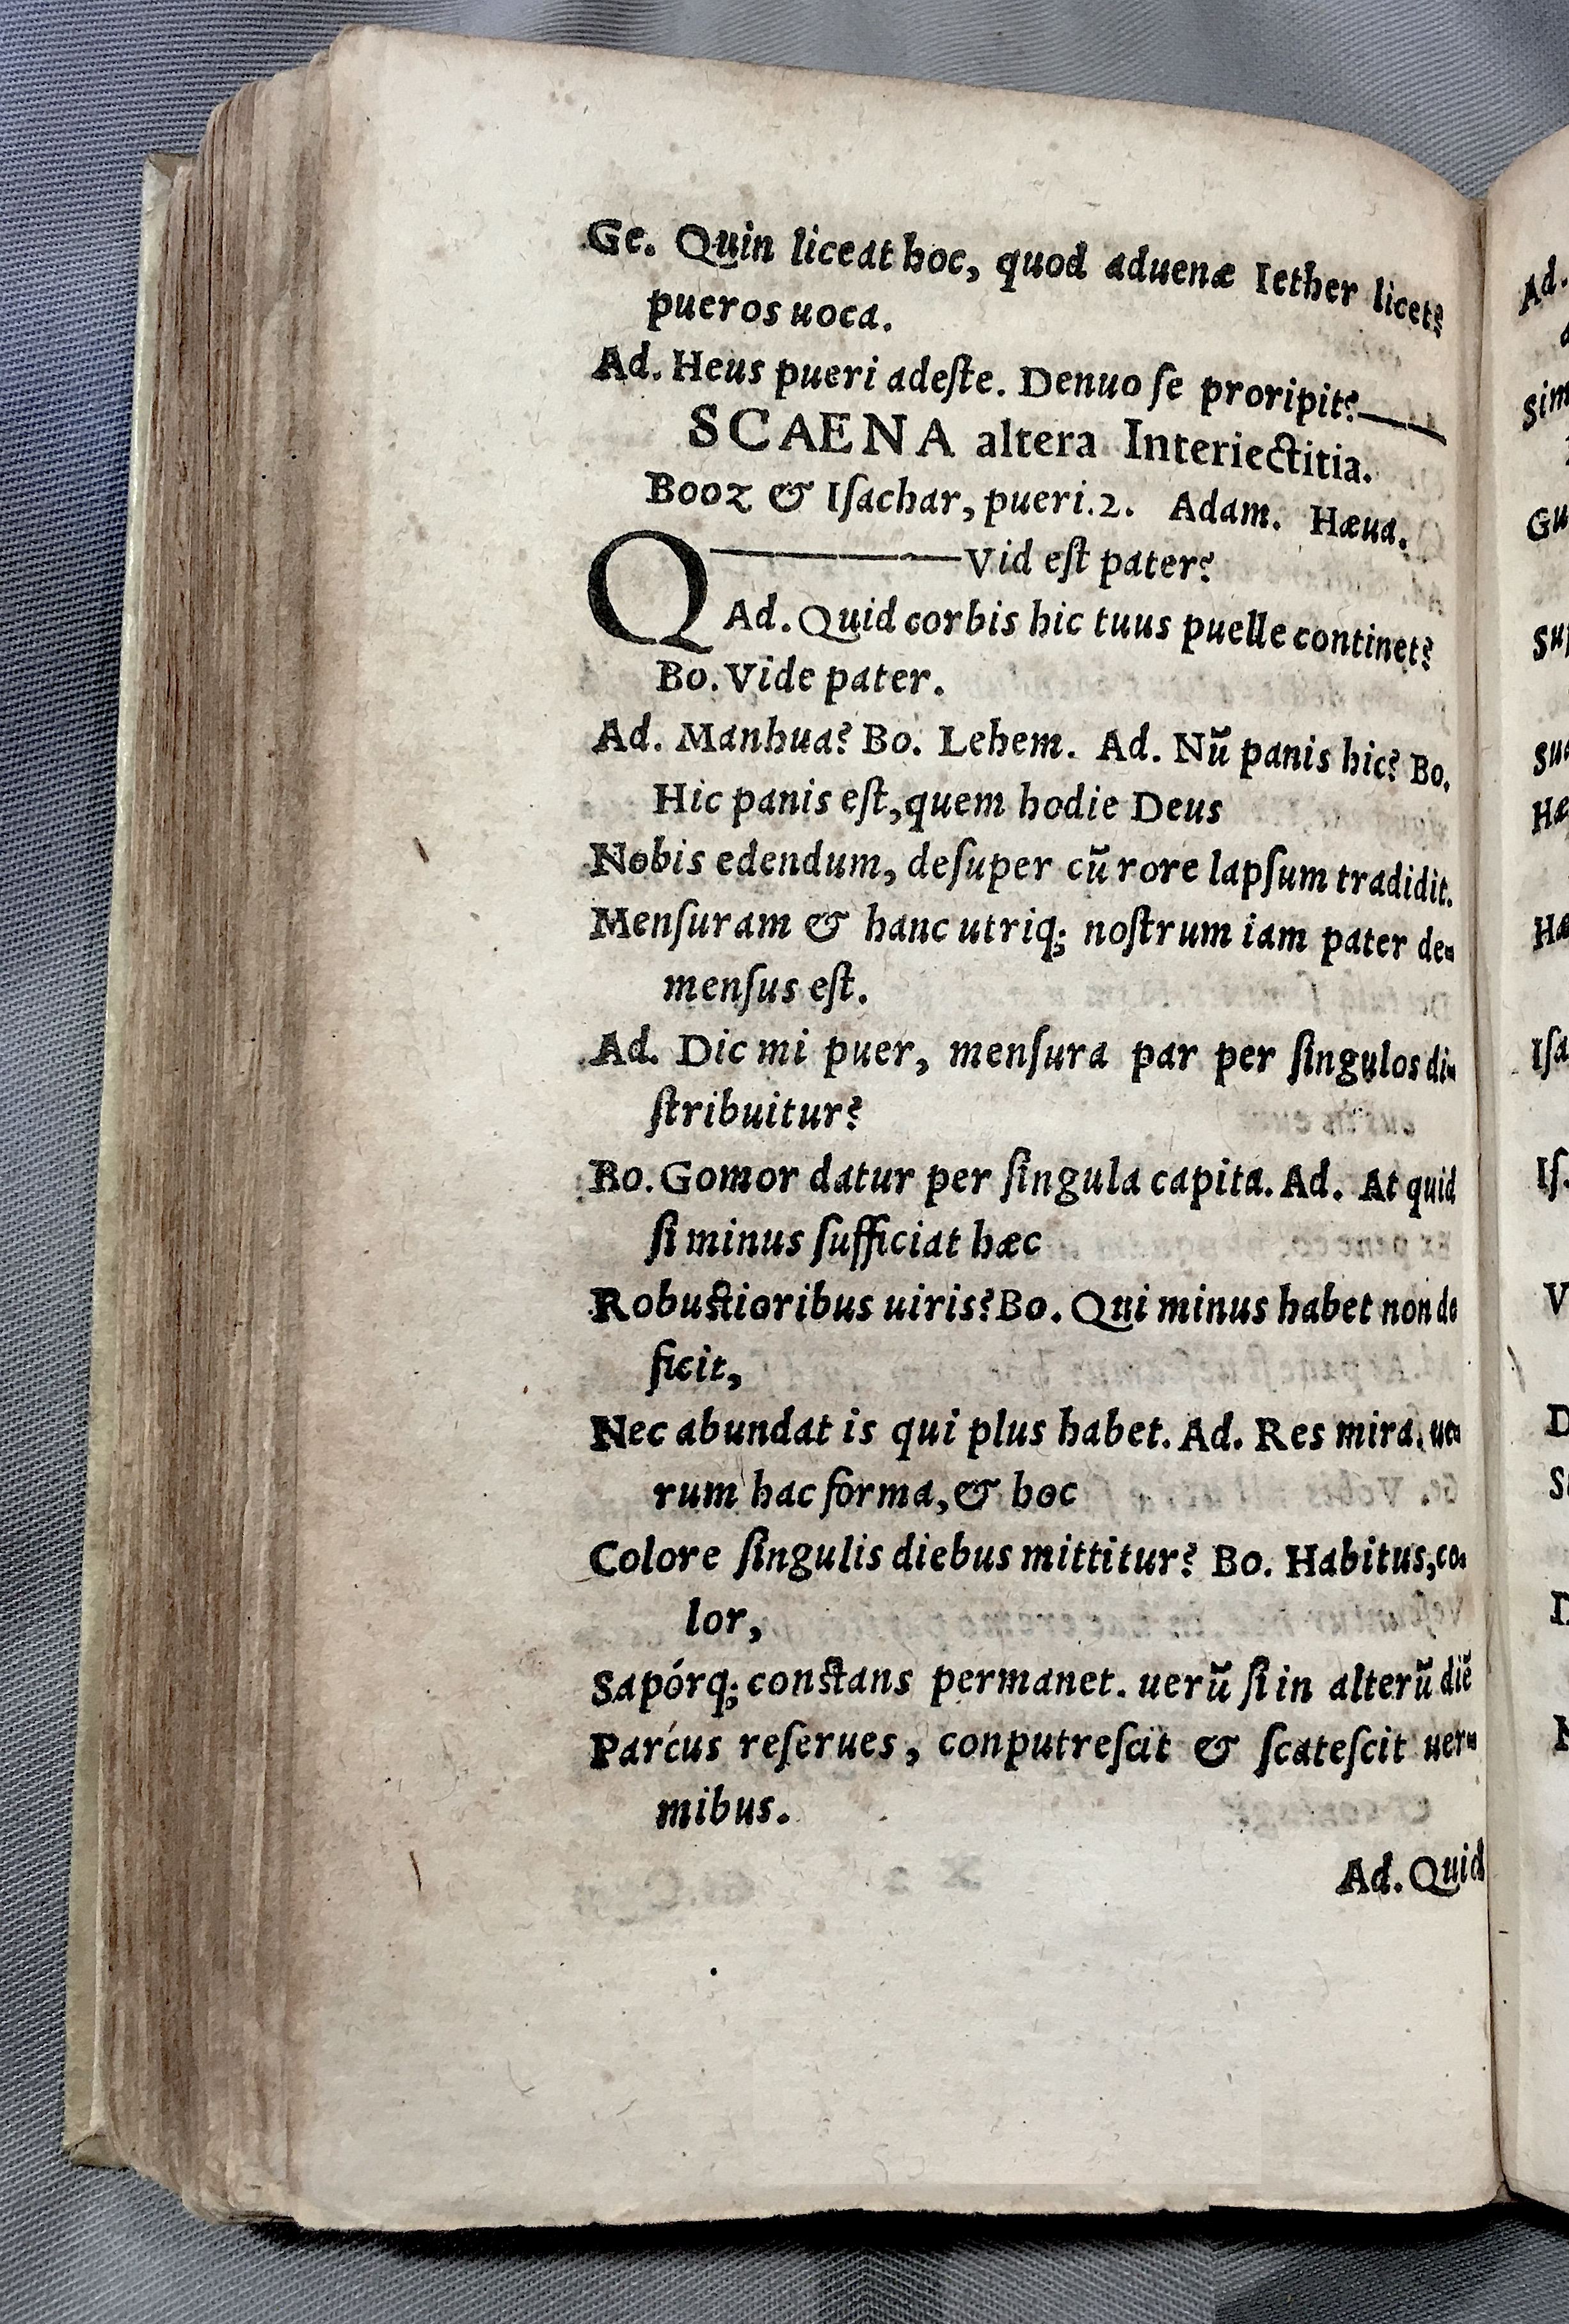 Ge. Quin liceat hoc, quod aduenæ Iether licet?
pueros uoca.
Ad. Heus pueri adeſte. Denuo ſe proripit?—
SCAENA altera Interiectitia.
Booz & Iſachar, pueri.2. Adam. Hæua.
Q———Vid eſt pater?
Ad. Quid corbis hic tuus puelle continet?
Bo. Vide pater.
Ad. Manhua? Bo. Lehem. Ad. Nū panis hic? Bo.
Hic panis eſt, quem hodie Deus
Nobis edendum, deſuper cū rore lapſum tradidit.
Menſuram & hanc utriq; noſtrum iam pater de-
menſus eſt.
Ad. Dic mi puer, menſura par per ſingulos di-
ſtribuitur?
Bo. Gomor datur per ſingula capita. Ad. At quid
ſi minus ſufficiat hæc
Robuſtioribus uiris? Bo. Qui minus habet non de
ficit,
Nec abundat is qui plus habet. Ad. Res mira. ue-
rum hac forma, & hoc
Colore ſingulis diebus mittitur? Bo. Habitus, co-
lor,
Sapórq; conſtans permanet. uerū ſi in alterū diē
Parcus reſerues, conputreſcit & ſcateſcit uer-
mibus.
Ad. Quid
Ad.
Sim
Gu
Hæ
Iſa
Iſ.
V
D